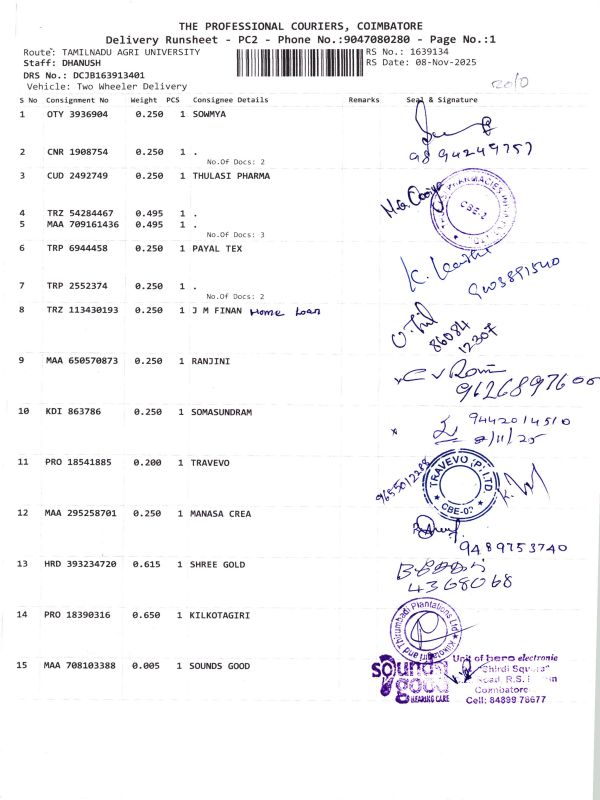 THE PROFESSIONAL COURIERS, COIMBATORE
Delivery Runsheet - PC2 - Phone No.:9047080280 - Page No.:1
Route: TAMILNADU AGRI UNIVERSITY RS No.: 1639134
Staff: DHANUSH RS Date: 08-Nov-2025
DRS No.: DCJB163913401
Vehicle: Two Wheeler Delivery
S No Consignment No Weight PCS Consignee Details Remarks Seal & Signature
1 OTY 3936904 0.250 1 SOWMYA
9894249757
2 CNR 1908754 0.250 1 .
No.Of Docs: 2
3 CUD 2492749 0.250 1 THULASI PHARMA
CBE-2
4 TRZ 54284467 0.495 1 .
5 MAA 709161436 0.495 1 .
No.Of Docs: 3
6 TRP 6944458 0.250 1 PAYAL TEX
9003891540
7 TRP 2552374 0.250 1 .
No.Of Docs: 2
8 TRZ 113430193 0.250 1 J M FINAN Home Loan
86084
12307
9 MAA 650570873 0.250 1 RANJINI
9626897600
10 KDI 863786 0.250 1 SOMASUNDRAM
9442014510
8/11/25
11 PRO 18541885 0.200 1 TRAVEVO
9655012288
TRAVEVO (P) LTD.
CBE-02
12 MAA 295258701 0.250 1 MANASA CREA
9489753740
13 HRD 393234720 0.615 1 SHREE GOLD
4368068
14 PRO 18390316 0.650 1 KILKOTAGIRI
Thirumbadi Plantations Ltd
15 MAA 708103388 0.005 1 SOUNDS GOOD
sounds good
HEARING CARE
Unit of hero electronic
"Shirdi Square"
Road, R.S.
Coimbatore
Cell: 84899 76677